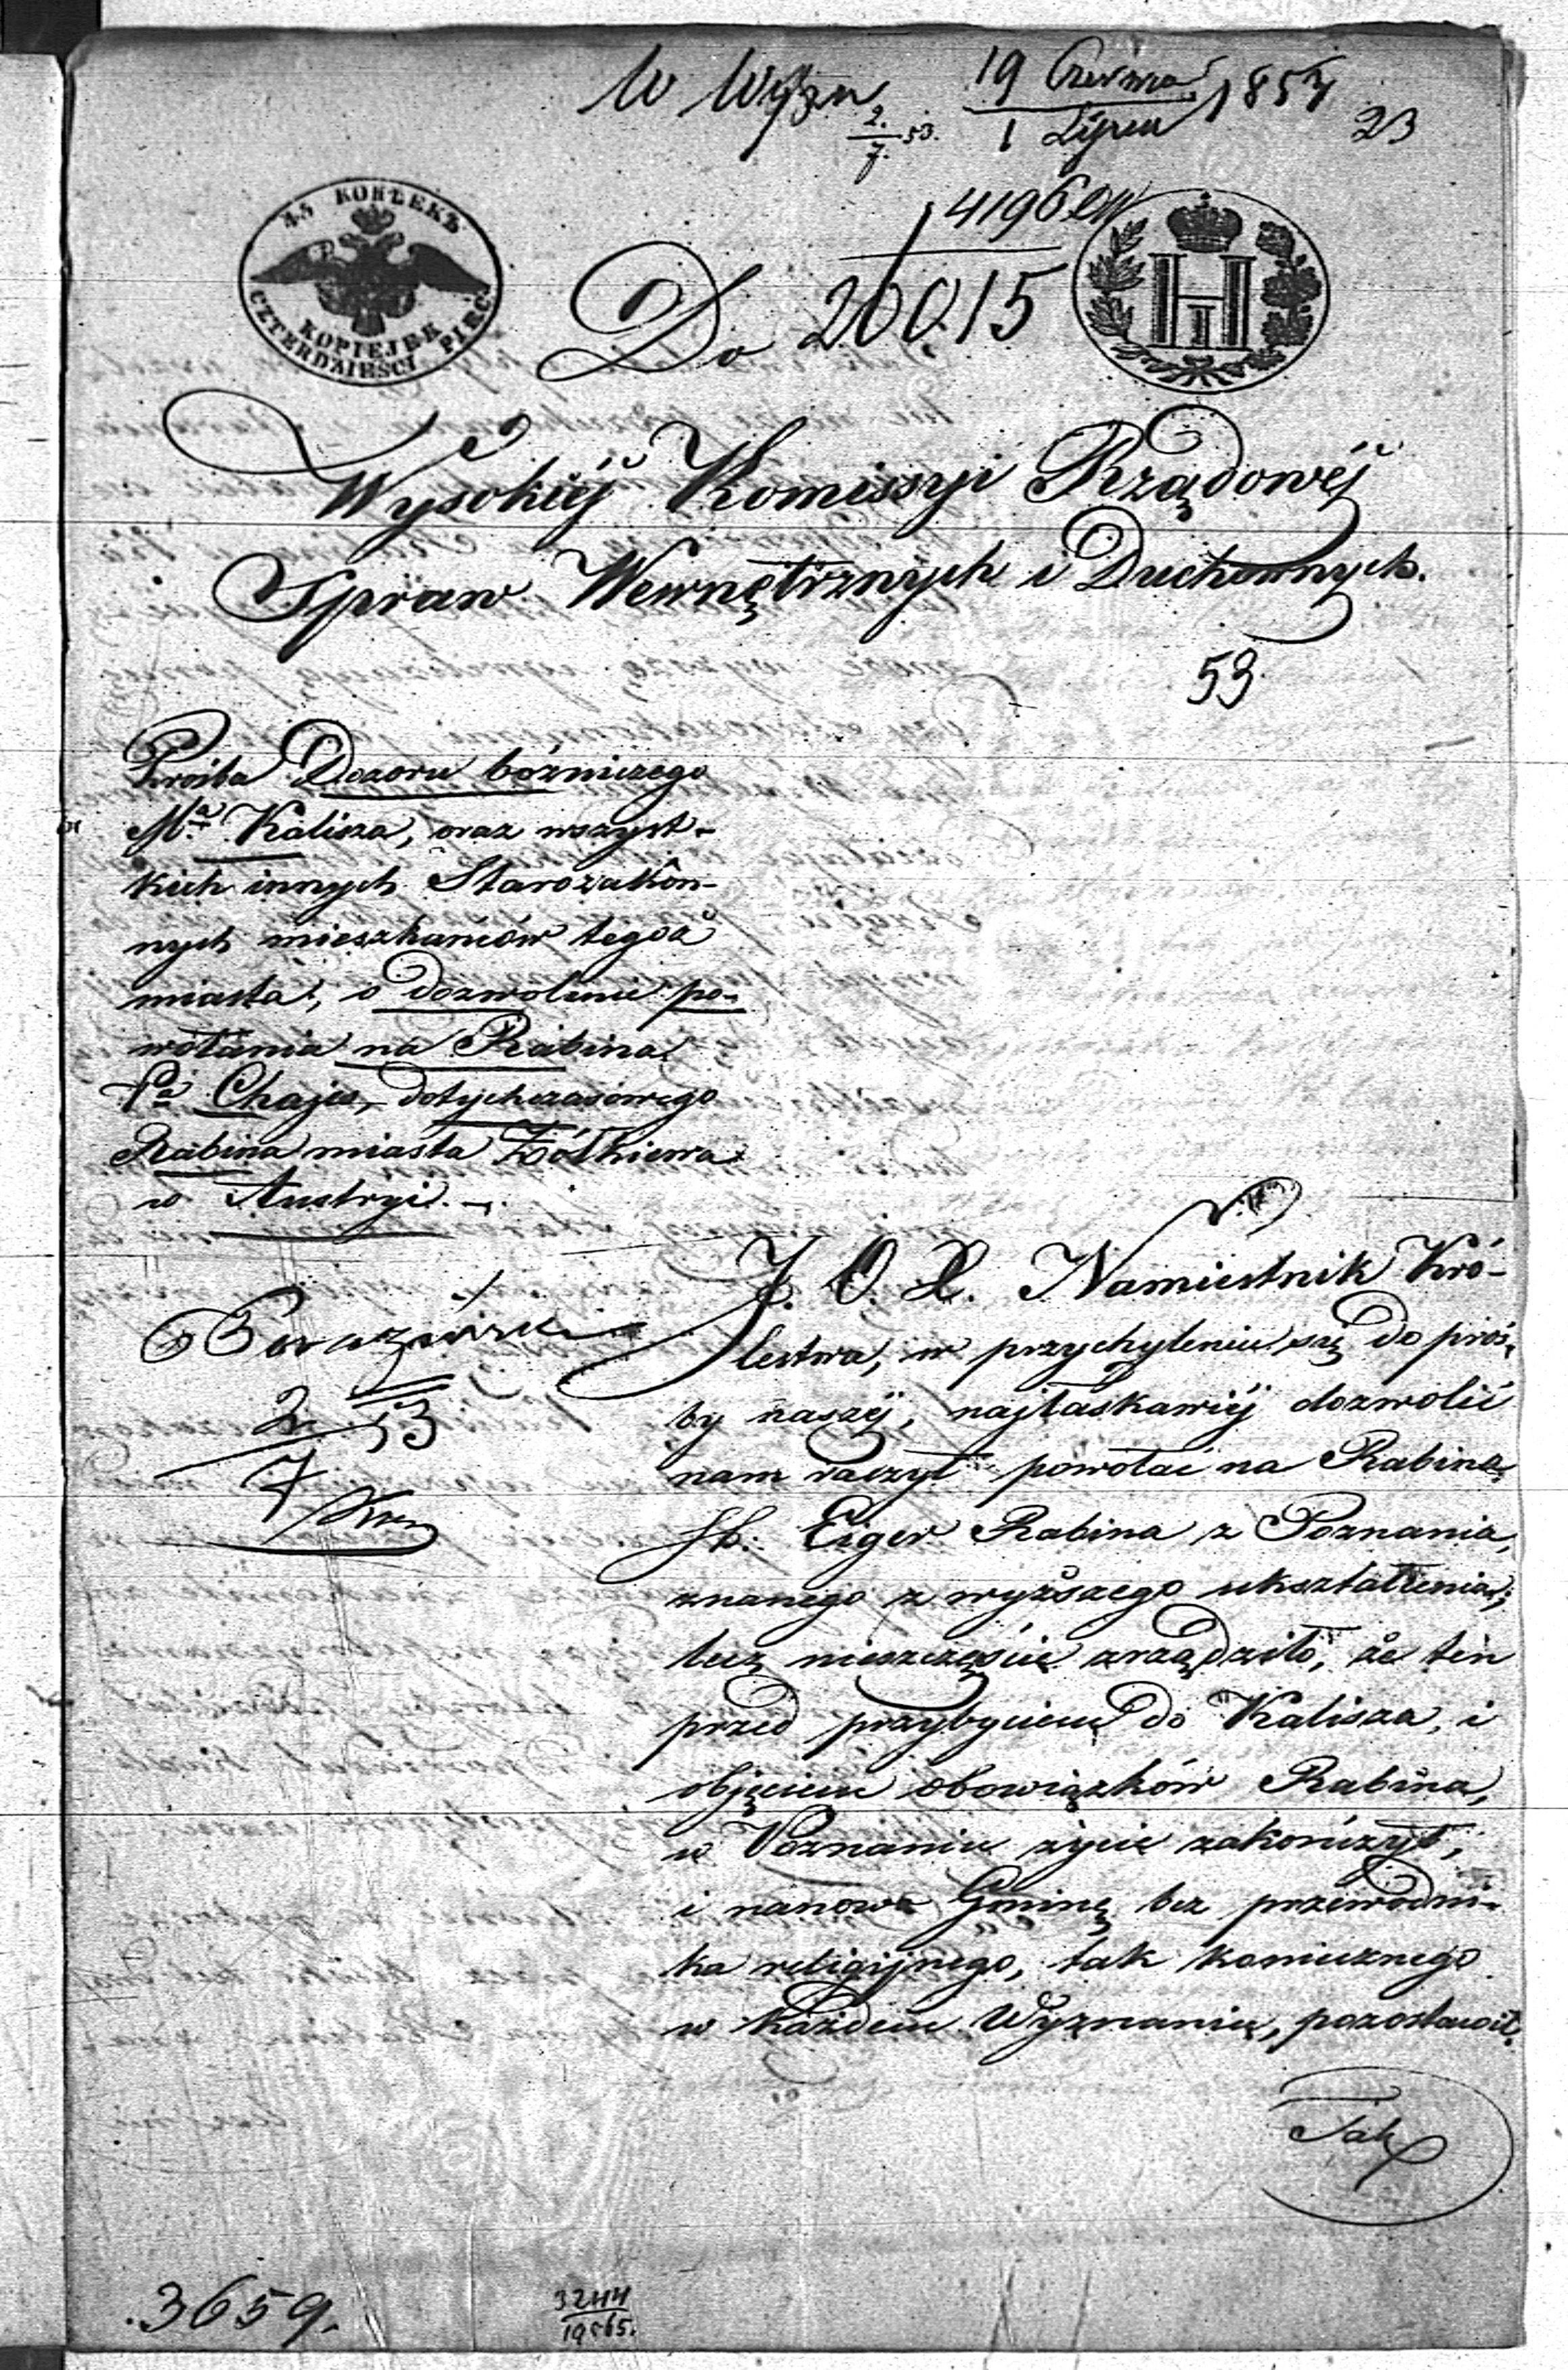 W Wyzn 19 Czerwca 1853
2./7. 53. 1 Lipca 23
14196
45 КОПѢЕКЪ
KOPIEJEK
CZTERDZIEŚCI PIĘĆ
Do 20015
Wysokiéj Komissyi Rządowéj
Spraw Wewnętrznych i Duchownych.
53.
Prośba Dozoru bóżniczego
Mta Kalisza, oraz wszyst-
kich innych Starozakon-
nych mieszkańców tegoż
miasta, o dozwolenie po-
wołania na Rabina
Pa Chajes, dotychczasowego
Rabina miasta Żółkiewa
w Austryi.
J. O. X. Namiestnik Kró-
lestwa, w przychyleniu się do proś-
by naszéj, najłaskawiéj dozwolić
nam raczył powołać na Rabina
Sb. Eiger Rabina z Poznania,
znanego z wyższego ukształcenia,
lecz nieszczęście zrządziło, że ten
przed przybyciem do Kalisza, i
objęciem obowiązków Rabina,
w Poznaniu życie zakończył,
i nanowo Gminę bez przewodni-
ka religijnego, tak koniecznego
w każdem Wyznaniu, pozostawił.
2/7 53
Tak
3659.
3244